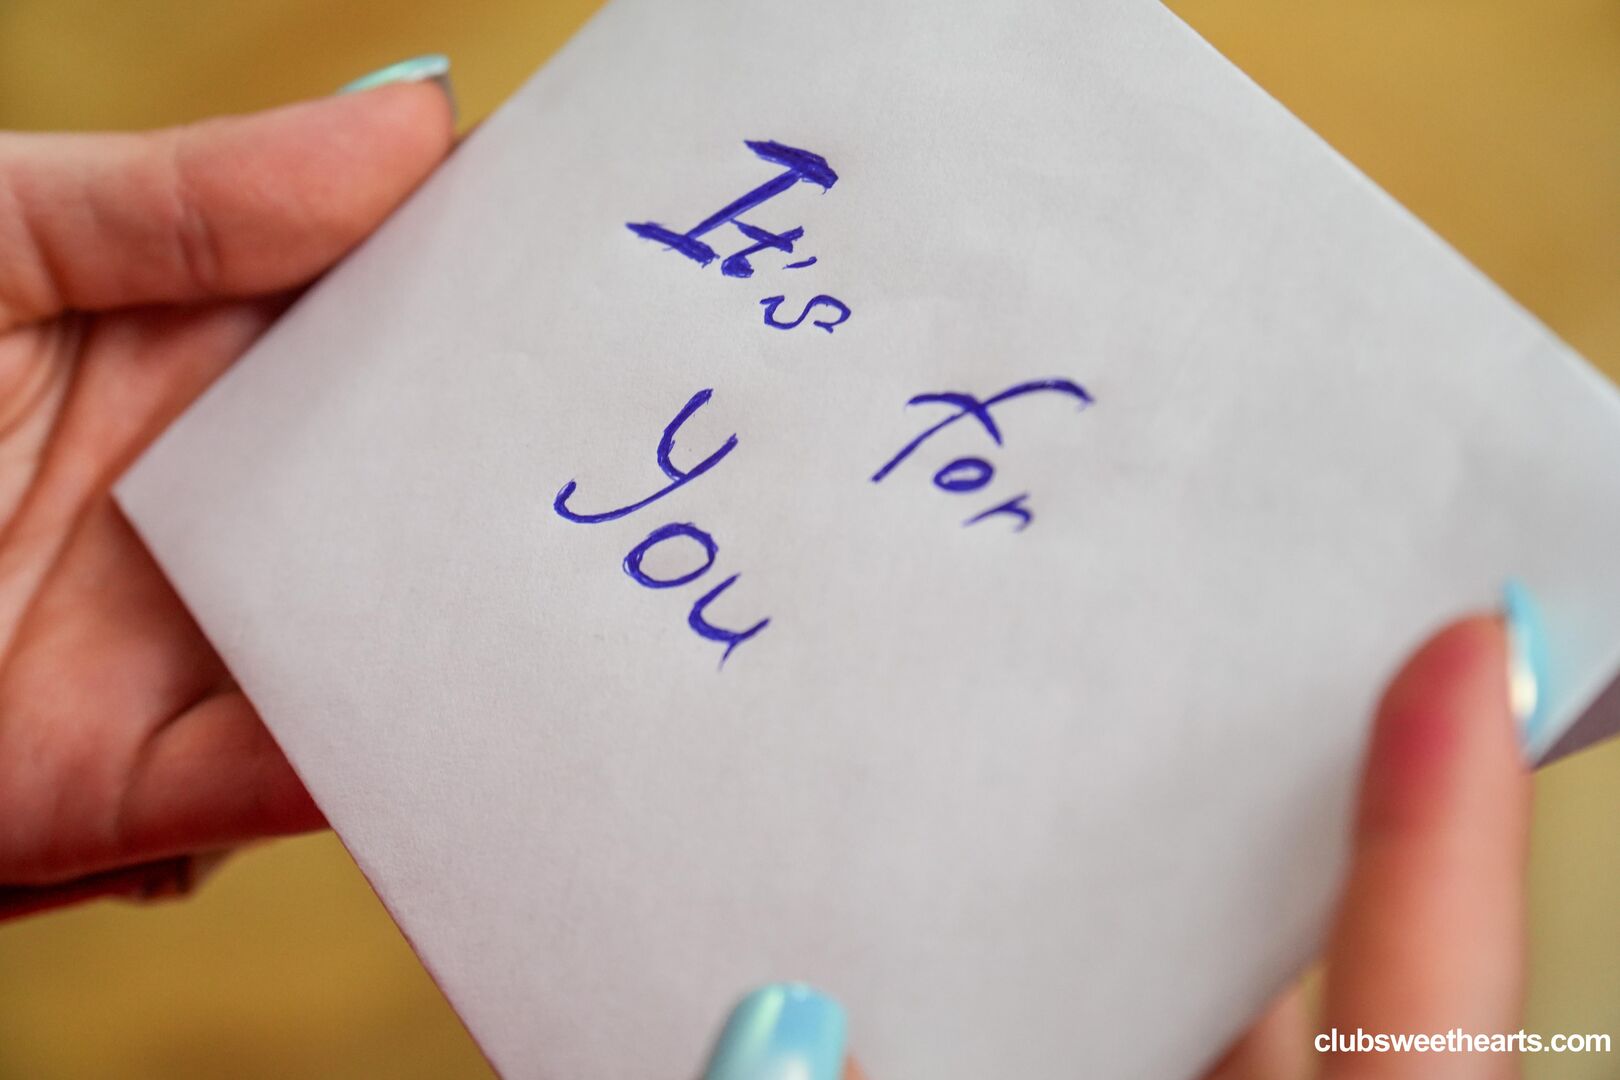 It's for
you
clubsweethearts.com